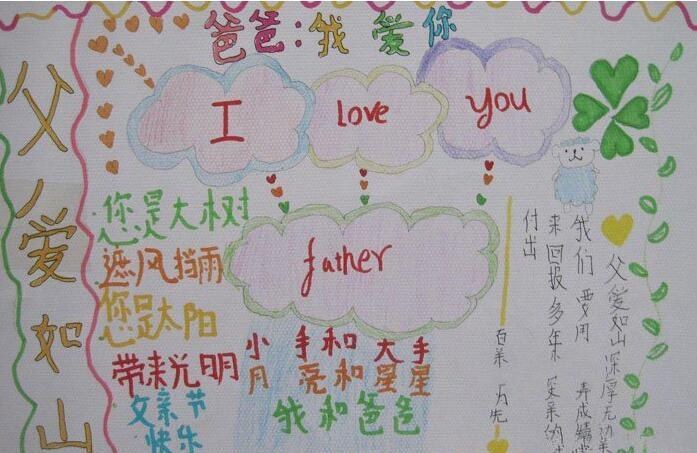 爸爸:我爱你
父爱如山
I love you
father
您是大树
遮风挡雨
您是太阳
带来光明
父亲节
快乐
小手和大手
月亮和星星
我和爸爸
父爱如山深厚无
我们要用
来回报多年父亲的
付出